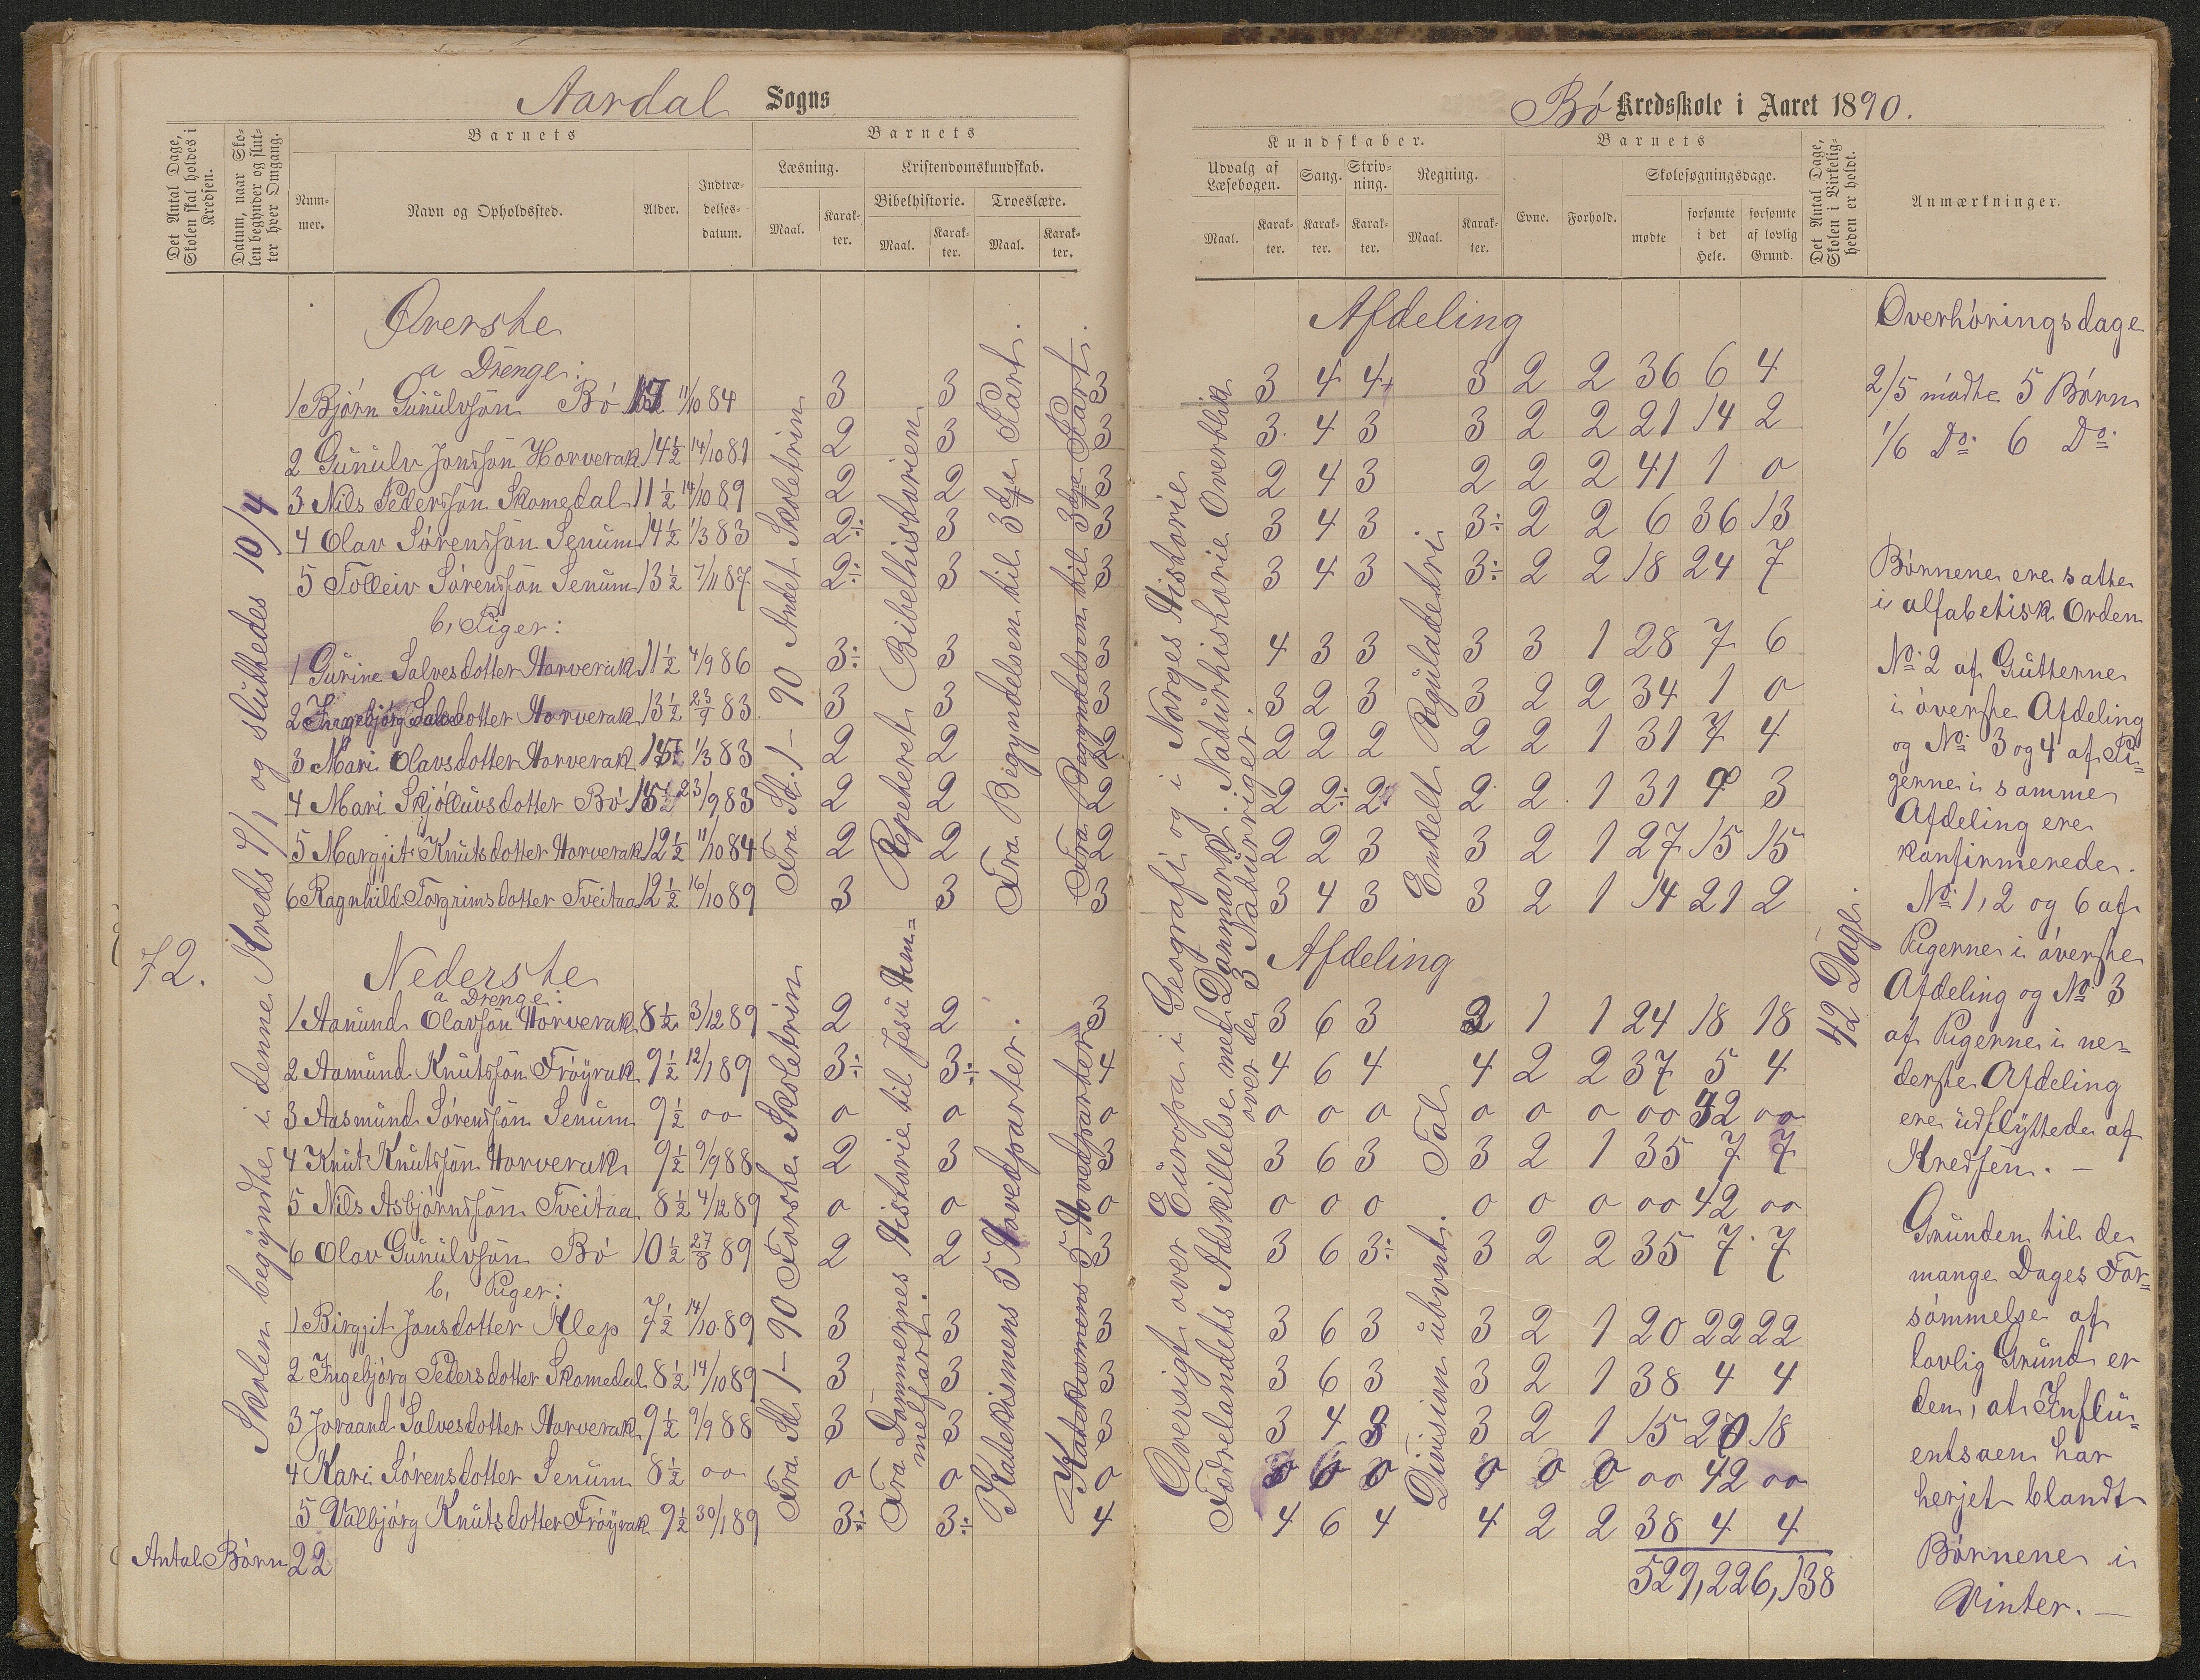 Aardal Sogns
Det Antal Dage, Skolen skal holdes i Kredsen.
Datum, naar Skolen begynder og slutter hver Omgang.
Barnets
Nummer.
Navn og Opholdssted.
Alder.
Indtrædelsesdatum.
Barnets
Læsning.
Kristendomskundskab.
Bibelhistorie.
Troeslære.
Maal.
Karakter.
Maal.
Karakter.
Maal.
Karakter.
72.
Skolen begyndte i denne Kreds 7/1 og sluttedes 10/4
Øverste
a Drenge:
1 Bjørn Gunulvsøn Bø 11/10 84 3 3 3
2 Gunulv Jonssøn Horverak 14½ 14/10 81 2 3 3
3 Nils Pederssøn Skomedal 11½ 14/10 89 2 2 3
4 Olav Sørenssøn Senum 14½ 1/3 83 2÷ 3 3
5 Tolleiv Sørenssøn Senum 13½ 7/11 87 2÷ 3 3
b, Piger:
1 Gurine Salvesdotter Horverak 11½ 4/9 86 3÷ 3 3
2 Ingebjørg Salvesdotter Horverak 13½ 23/9 83 3 3 3
3 Mari Olavsdotter Horverak 1/3 83 2 2 2
4 Mari Skjølluvsdotter Bø 23/9 83 2 2 2
5 Margjit Knutsdotter Horverak 12½ 11/10 84 2 2 2
6 Ragnhild Torgrimsdotter Tveitaa 12½ 16/10 89 3 3 3
Fra St. 1 – 90 Andet Skoletrin
Repeteret Bibelhistorien
Fra Begyndelsen til 3dje Part.
Fra Begyndelsen til 3dje Part.
Nederste
a Drenge:
1 Aanund Olavsøn Horverak 8½ 3/12 89 2 2 3
2 Aamund Knutssøn Frøyrak 9½ 12/1 89 3÷ 3÷ 4
3 Aasmund Sørenssøn Senum 9½ 00 0 0 0
4 Knut Knutssøn Horverak 9½ 9/9 88 2 3 3
5 Nils Asbjørnssøn Tveitaa 8½ 4/12 89 0 0 0
6 Olav Gunulvsøn Bø 10½ 27/8 89 2 2 3
b, Piger:
1 Birgjit Jonsdotter Klep 7½ 14/10 89 3 3 3
2 Ingebjørg Pedersdotter Skomedal 8½ 14/10 89 3 3 3
3 Joraand Salvesdotter Horverak 9½ 9/9 88 3 3 3
4 Kari Sørensdotter Senum 8½ 00 0 0 0
5 Valbjørg Knutsdotter Frøyrak 9½ 30/1 89 3÷ 3÷ 4
Antal Børn 22
Fra St 1 – 90 Første Skoletrin
Fra Dommernes Historie til Jesu Him=
melfart.
Katekismens 5 Hovedparter.
Katekismens 5 Hovedparter
Bø Kredsskole i Aaret 1890.
Kundskaber.
Udvalg af Læsebogen.
Sang.
Skrivning.
Regning.
Maal.
Karakter.
Karakter.
Karakter.
Maal.
Karakter.
Barnets
Evne.
Forhold.
Skolesøgningsdage.
mødte
forsømte i det Hele.
forsømte af lovlig Grund.
Det Antal Dage, Skolen i Virkeligheden er holdt.
Anmærkninger.
Oversigt over Europa i Geografi og i Norges Historie
Fødrelandets Adskillelse med Danmark. Naturhistorie Overblik
over de 3 Naturriger.
Afdeling
3 4 4+ 3 2 2 36 6 4
3 4 3 3 2 2 21 14 2
2 4 3 2 2 2 41 1 0
3 4 3 3÷ 2 2 6 36 13
3 4 3 3÷ 2 2 18 24 7
4 3 3 3 3 1 28 7 6
3 2 3 3 2 2 34 1 0
2 2 2 2 2 1 31 7 4
2 2÷ 2 2 2 1 31 3
2 2 3 3 2 1 27 15 15
3 4 3 3 2 1 14 21 2
Enkelt Reguladetri.
Afdeling
3 6 3 1 1 24 18 18
4 6 4 4 2 2 37 5 4
0 0 0 0 0 0 00 42 00
3 6 3 3 2 1 35 7 7
0 0 0 0 0 0 00 42 00
3 6 3÷ 3 2 2 35 7 7
3 6 3 3 2 1 20 22 22
3 6 3 3 2 1 38 4 4
3 4 3 3 2 1 15 18
0 0 0 0 0 0 00 42 00
4 6 4 4 2 2 38 4 4
529, 226, 138
Division ubvnt. Tal
42 Dage.
Overhøringsdage
2/5 mødte 5 Børn
1/6 Do: 6 Do:
Børnene ere satte
i alfabetisk Orden
No: 2 af Gutterne
i øverste Afdeling
og No: 3 og 4 af Pi=
gerne i samme
Afdeling ere
konfirmerede.
No: 1, 2 og 6 af
Pigerne i øverste
Afdeling og No 3
af Pigerne i ne=
derste Afdeling
ere udflyttede af
Kredsen. –
Grunden til de
mange Dages For=
sømmelse af
lovlig Grund er
den, at Influ=
entsaen har
herjet blandt
Børnene i
Vinter. –